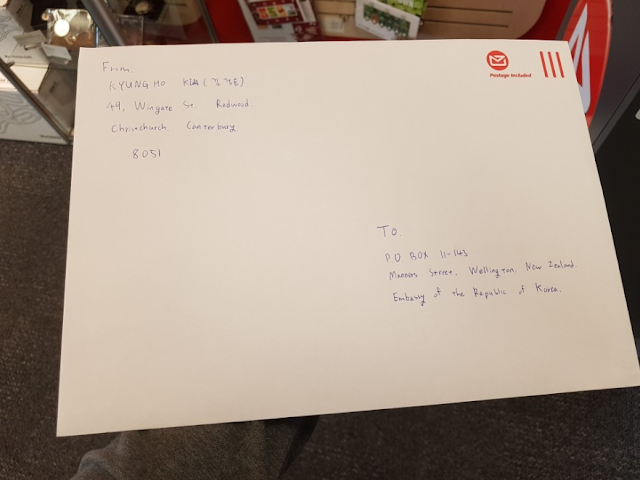 From.
KYUNG HO KIM (김경호)
49, Wingate St. Redwood.
Christchurch. Canterbury.
8051
Postage Included
To.
P.O BOX 11-143
Manners Street, Wellington. New Zealand.
Embassy of the Republic of Korea.